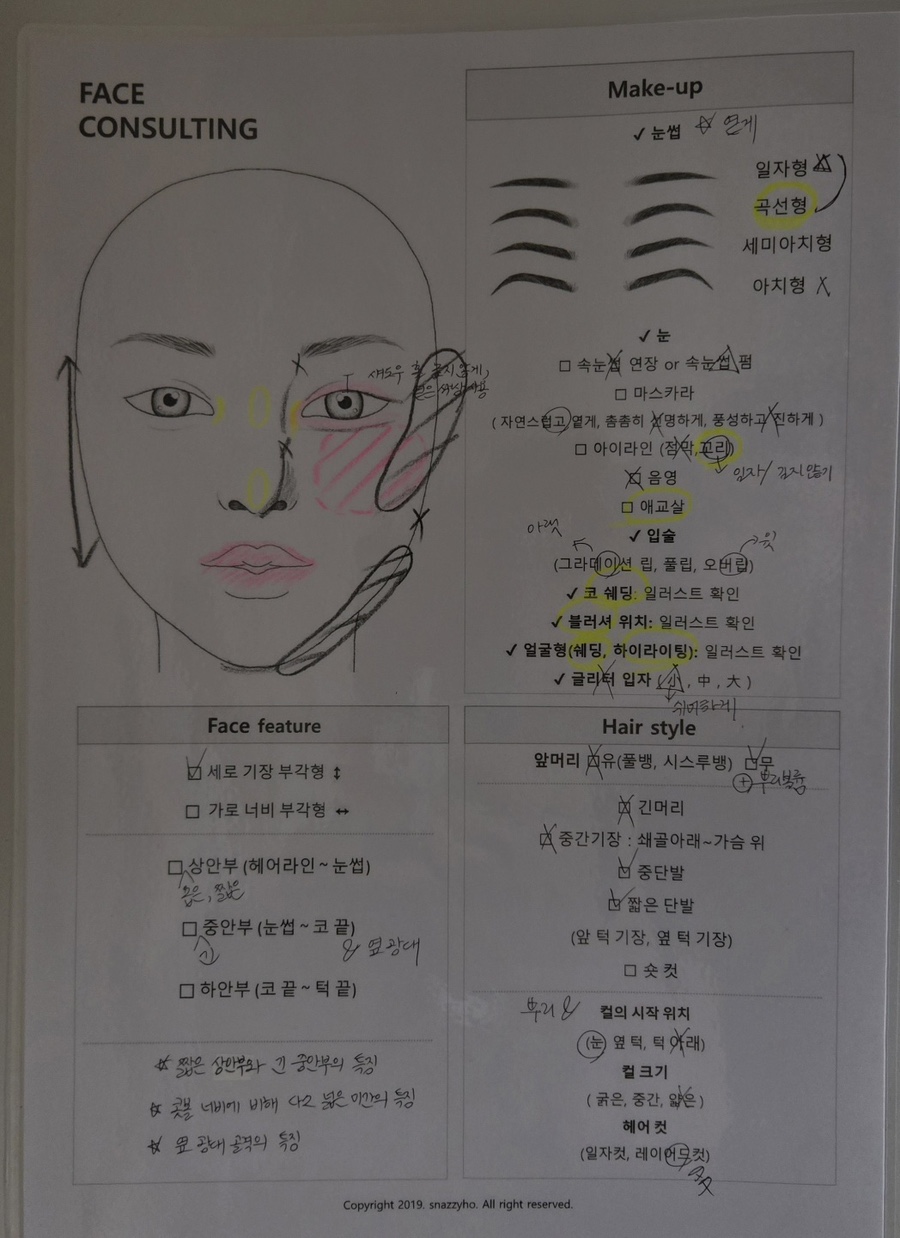 FACE
CONSULTING
섀도우
Make-up
✓ 눈썹 ☆ 연하게
일자형 △
곡선형
세미아치형
아치형 X
✓ 눈
□ 속눈썹 연장 or 속눈썹 펌
□ 마스카라
( 자연스럽고 옅게, 촘촘히 선명하게, 풍성하고 진하게 )
□ 아이라인 (점막,꼬리)
□ 음영
□ 애교살
✓ 입술
(그라데이션 립, 풀립, 오버립)
✓ 코 쉐딩: 일러스트 확인
✓ 블러셔 위치: 일러스트 확인
✓ 얼굴형(쉐딩, 하이라이팅): 일러스트 확인
✓ 글리터 입자 (小, 中, 大 )
Face feature
☑ 세로 기장 부각형 ↕
□ 가로 너비 부각형 ↔
□ 상안부 (헤어라인 ~ 눈썹)
좁은, 짧은
□ 중안부 (눈썹 ~ 코 끝)
긴 & 옆 광대
□ 하안부 (코 끝 ~ 턱 끝)
☆ 짧은 상안부와 긴 중안부의 특징
☆ 콧볼 너비에 비해 다소 넓은 미간의 특징
☆ 옆 광대 골격의 특징
Hair style
앞머리 □유(풀뱅, 시스루뱅) ☑무
⊕ 뿌리볼륨
□ 긴머리
□ 중간기장 : 쇄골아래~가슴 위
☑ 중단발
☑ 짧은 단발
(앞 턱 기장, 옆 턱 기장)
□ 숏 컷
뿌리 & 컬의 시작 위치
(눈 옆 턱, 턱 아래)
컬 크기
( 굵은, 중간, 얇은 )
헤어 컷
(일자컷, 레이어드컷)
Copyright 2019. snazzyho. All right reserved.